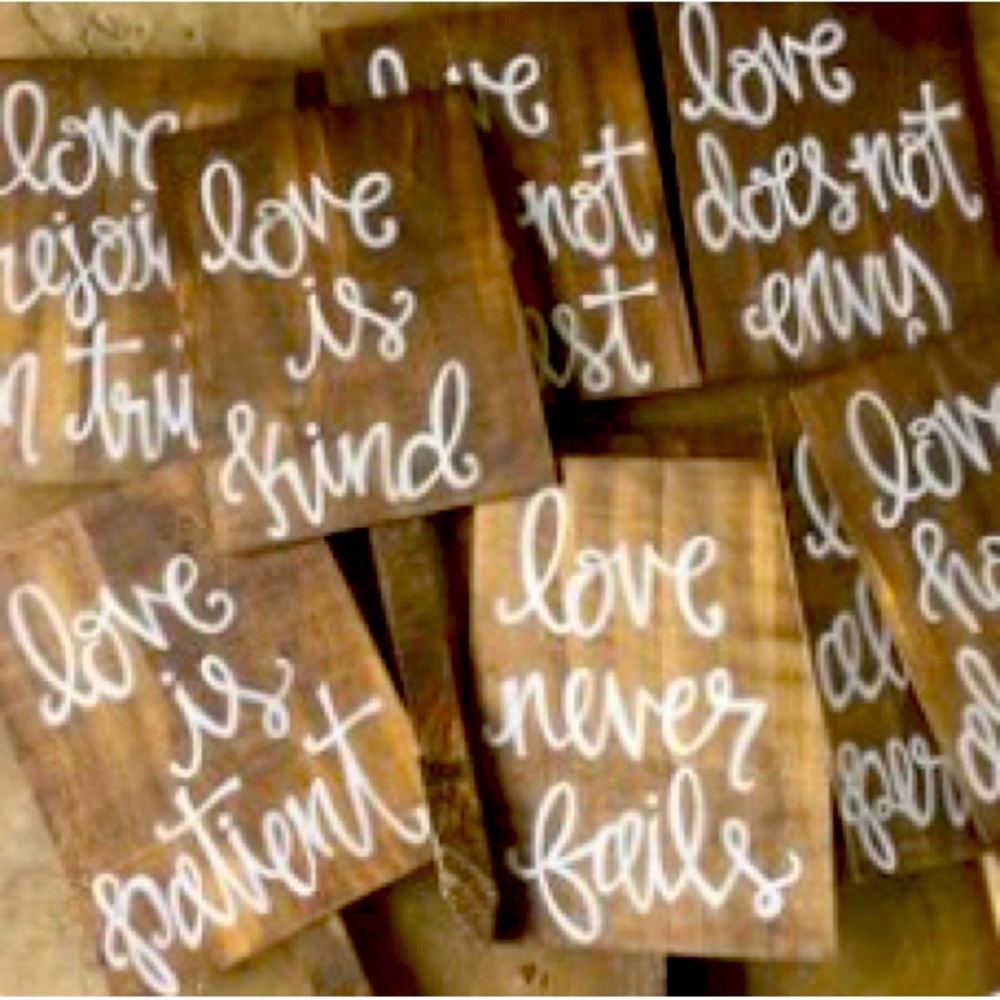 love
rejoi
tru
love
is
kind
not
est
love
does not
envy
love
is
patient
love
never
fails